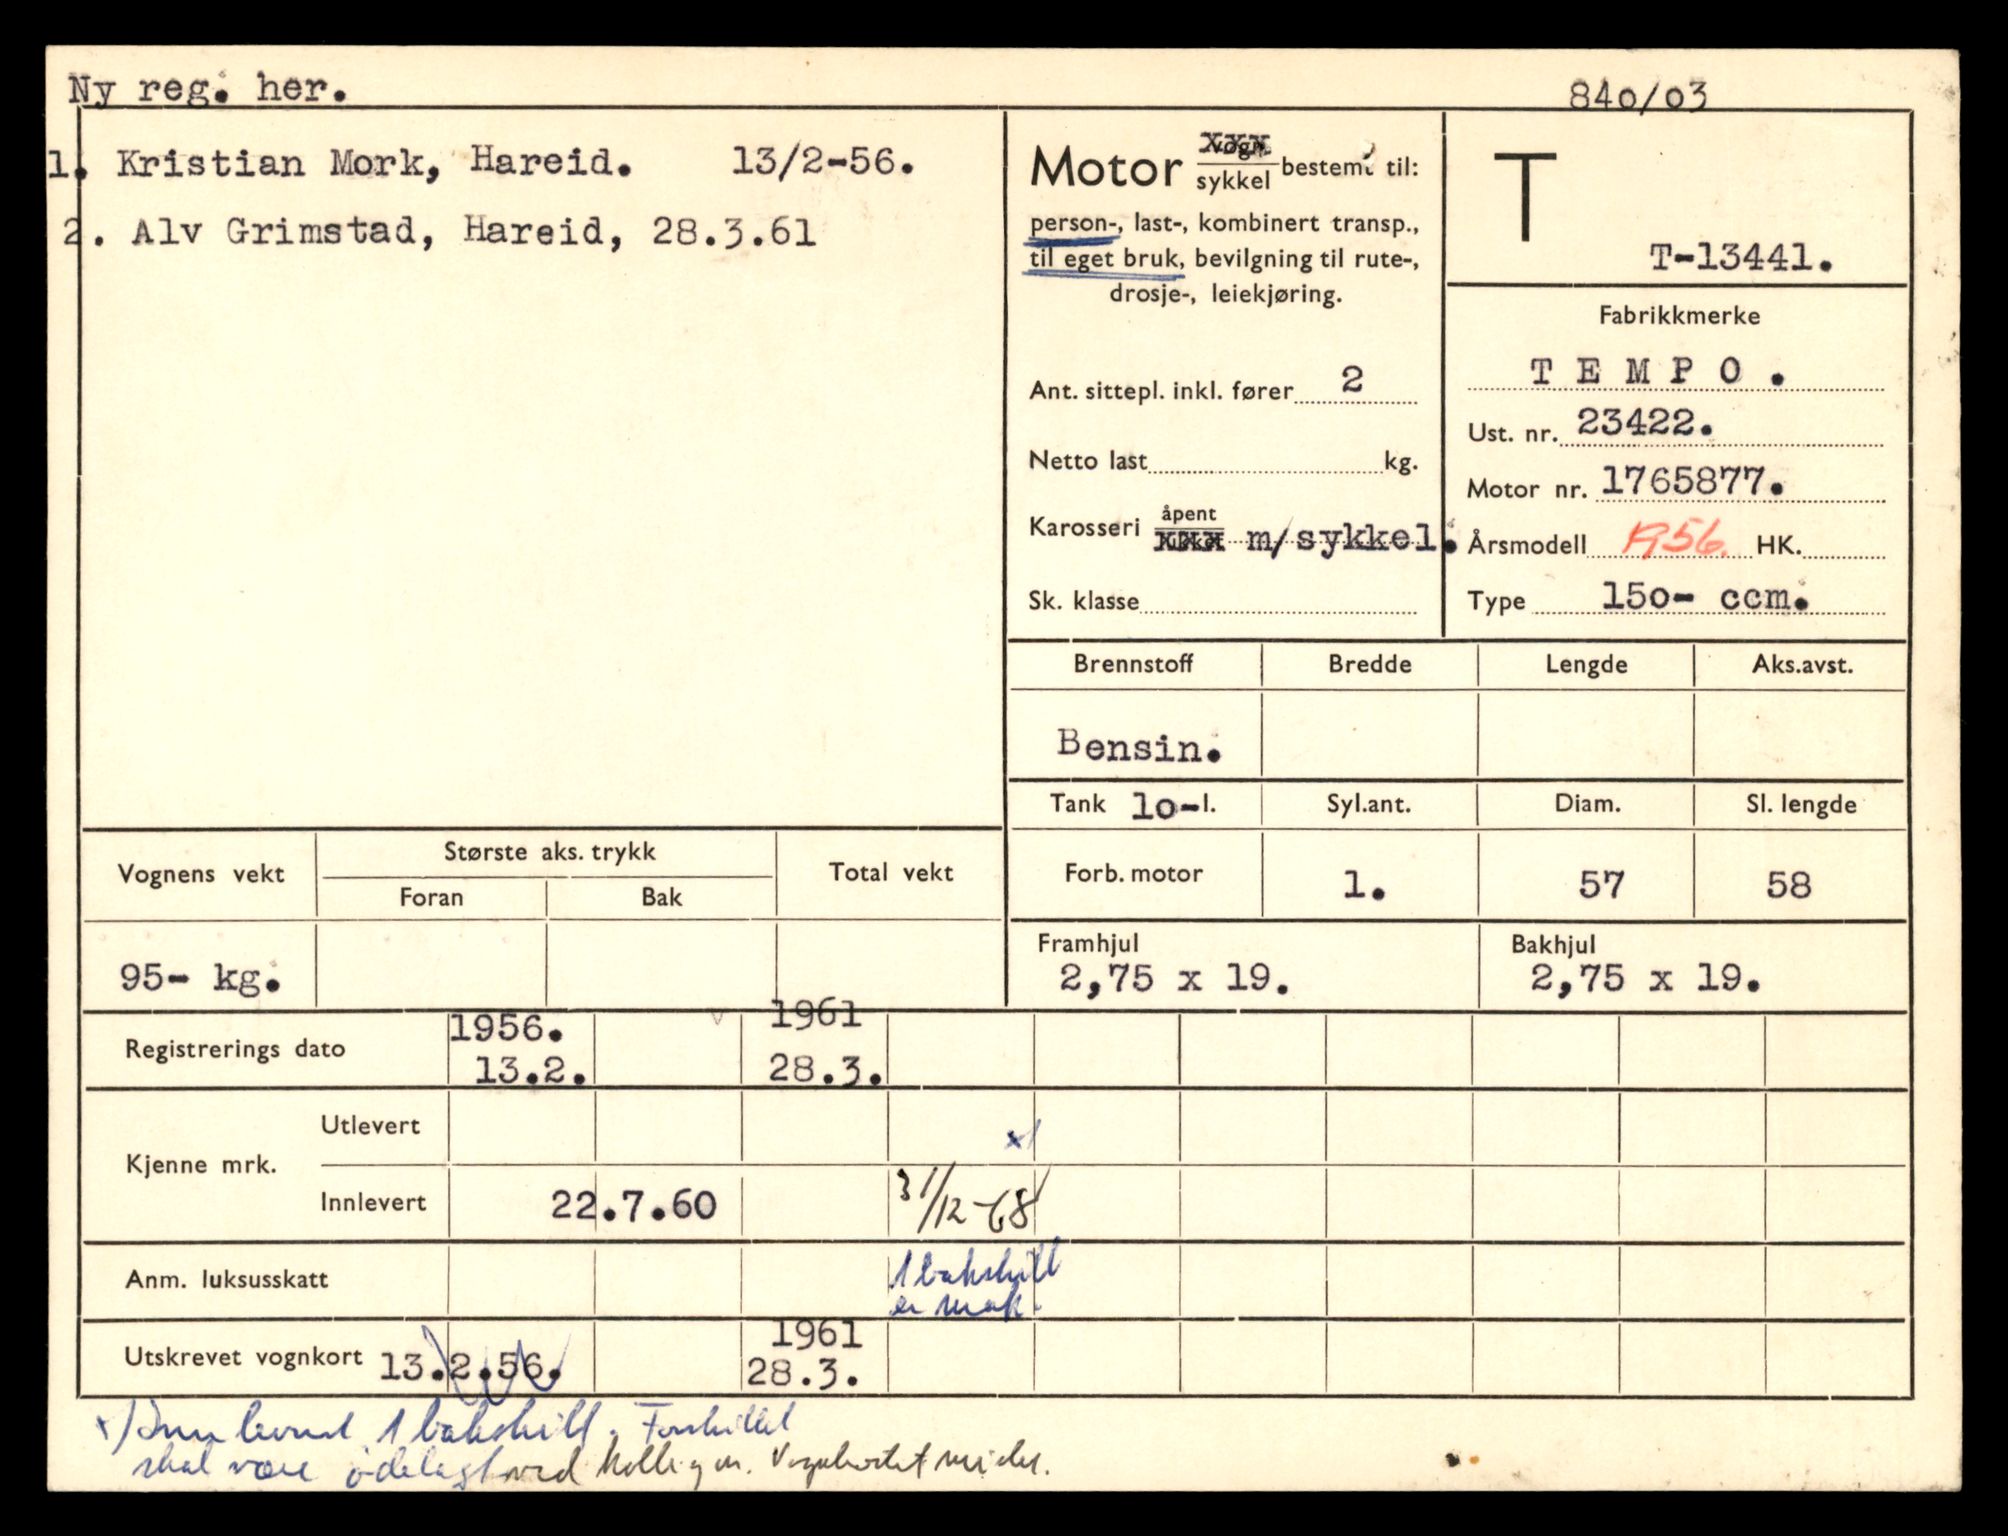 Ny reg. her.
840/03
1. Kristian Mork, Hareid. 13/2-56.
2. Alv Grimstad, Hareid, 28.3.61
Motor vogn sykkel bestemt til:
person-, last-, kombinert transp.,
til eget bruk, bevilgning til rute-,
drosje-, leiekjøring.
Ant. sittepl. inkl. fører 2
Netto last kg.
Karosseri åpent lukket m/sykkel.
Sk. klasse
T
T-13441.
Fabrikkmerke
TEMPO.
Ust. nr. 23422.
Motor nr. 1765877.
Årsmodell 1956. HK.
Type 15o- ccm.
Brennstoff Bredde Lengde Aks.avst.
Bensin.
Tank 1o-l. Syl.ant. Diam. Sl. lengde
Forb. motor 1. 57 58
Framhjul Bakhjul
2,75 x 19. 2,75 x 19.
Vognens vekt Største aks. trykk Total vekt
Foran Bak
95- kg.
1956. 1961
Registrerings dato 13.2. 28.3.
Kjenne mrk. Utlevert x)
Innlevert 22.7.60 31/12-68
Anm. luksusskatt 1 bakskilt
er
1961
Utskrevet vognkort 13.2.56. 28.3.
x) Innlevert 1 bakskilt. Forskiltet
skal være ødelagt ved Vognkortet